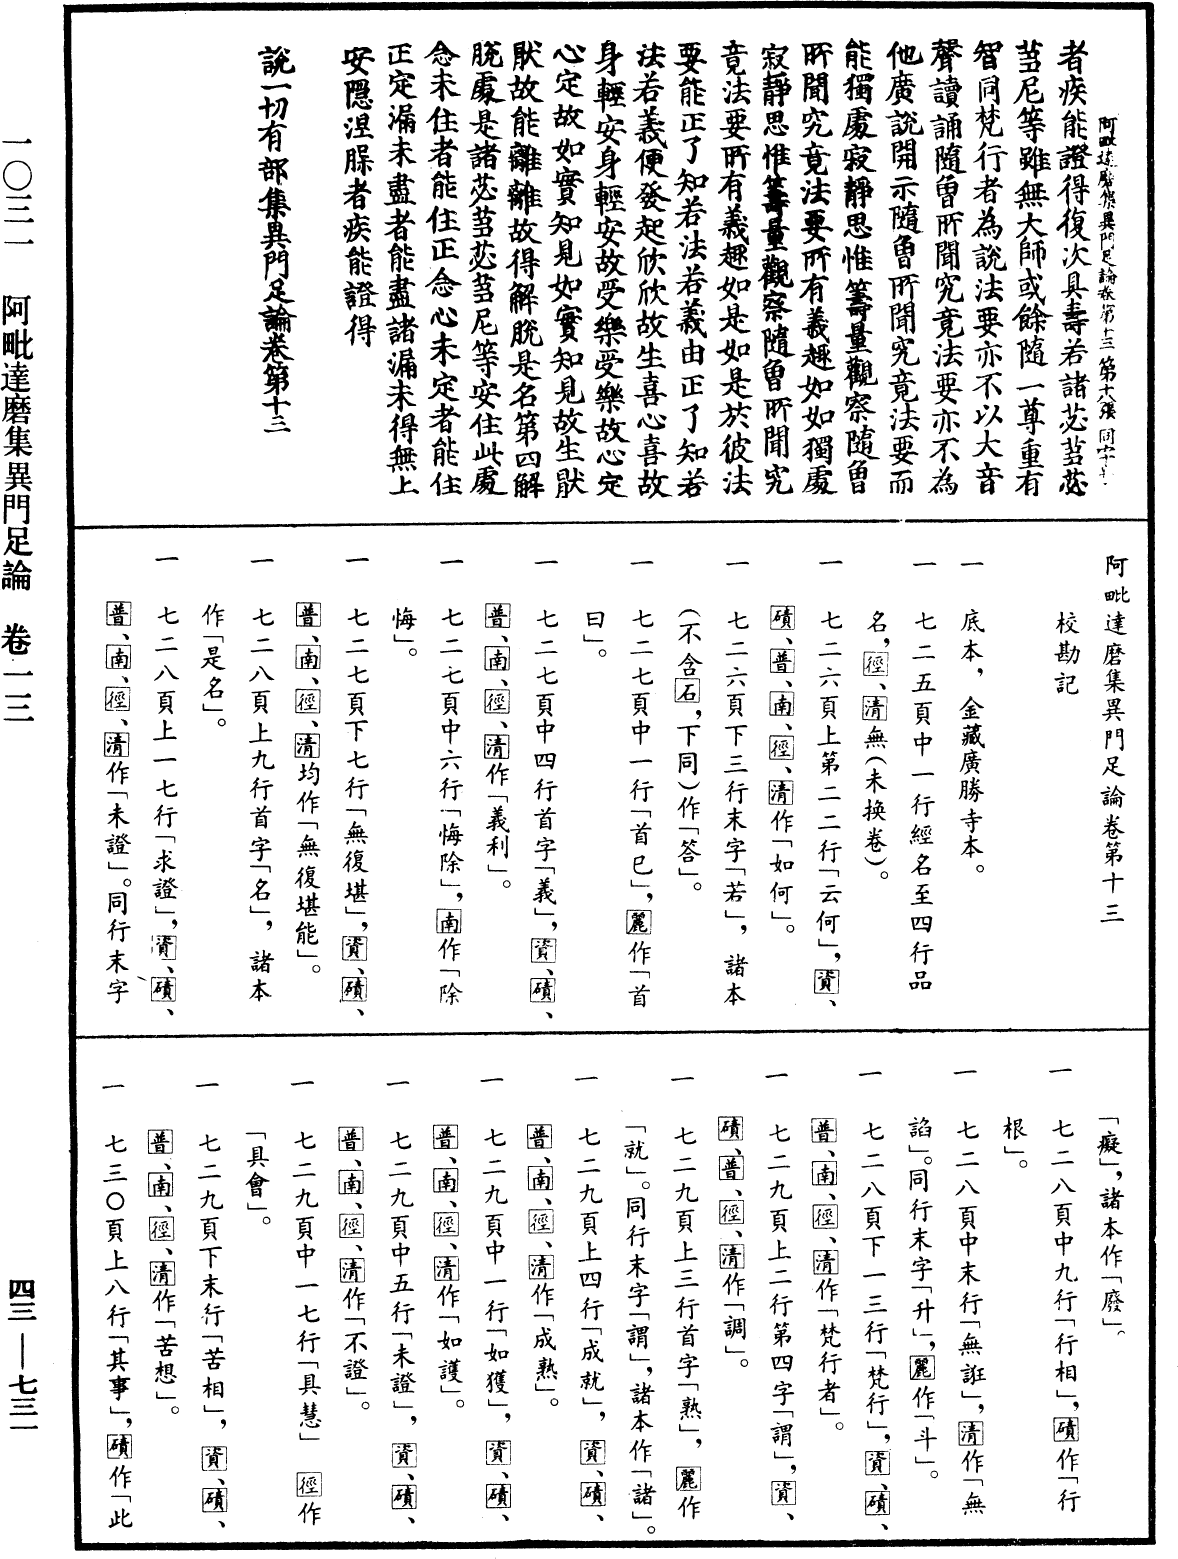 阿毗達磨集異門足論卷第十三 第十八張
者疾能證得復次具壽若諸苾芻苾
芻尼等雖無大師或餘隨一尊重有
智同梵行者為說法要亦不以大音
聲讀誦隨曾所聞究竟法要亦不為
他廣說開示隨曾所聞究竟法要而
能獨處寂靜思惟籌量觀察隨曾
所聞究竟法要所有義趣如如獨處
寂靜思惟籌量觀察隨曾所聞究
竟法要所有義趣如是如是於彼法
要能正了知若法若義由正了知若
法若義便發起欣欣故生喜心喜故
身輕安身輕安故受樂受樂故心定
心定故如實知見如實知見故生猒
猒故能離離故得解脫是名第四解
脫處是諸苾芻苾芻尼等安住此處
念未住者能住正念心未定者能住
正定漏未盡者能盡諸漏未得無上
安隱涅槃者疾能證得
說一切有部集異門足論卷第十三
阿毗達磨集異門足論卷第十三
校勘記
一 底本，金藏廣勝寺本。
一 七二五頁中一行經名至四行品
名，徑、清無（未换卷）。
一 七二六頁上第二二行「云何」，資、
磧、普、南、徑、清作「如何」。
一 七二六頁下三行末字「若」，諸本
（不含石，下同）作「答」。
一 七二七頁中一行「首已」，麗作「首
曰」。
一 七二七頁中四行首字「義」，資、磧、
普、南、徑、清作「義利」。
一 七二七頁中六行「悔除」，南作「除
悔」。
一 七二七頁下七行「無復堪」，資、磧、
普、南、徑、清均作「無復堪能」。
一 七二八頁上九行首字「名」，諸本
作「是名」。
一 七二八頁上一七行「求證」，資、磧、
普、南、徑、清作「未證」。同行末字
「癡」，諸本作「廢」。
一 七二八頁中九行「行相」，磧作「行
根」。
一 七二八頁中末行「無誑」，清作「無
諂」。同行末字「升」，麗作「斗」。
一 七二八頁下一三行「梵行」，資、磧、
普、南、徑、清作「梵行者」。
一 七二九頁上二行第四字「謂」，資、
磧、普、徑、清作「調」。
一 七二九頁上三行首字「熟」，麗作
「就」。同行末字「謂」，諸本作「諸」。
一 七二九頁上四行「成就」，資、磧、
普、南、徑、清作「成熟」。
一 七二九頁中一行「如獲」，資、磧、
普、南、徑、清作「如護」。
一 七二九頁中五行「未證」，資、磧、
普、南、徑、清作「不證」。
一 七二九頁中一七行「具慧」 徑作
「具會」。
一 七二九頁下末行「苦相」，資、磧、
普、南、徑、清作「苦想」。
一 七三〇頁上八行「其事」，磧作「此
一〇三一 阿毗達磨集異門足論 卷一三
四三——七三一